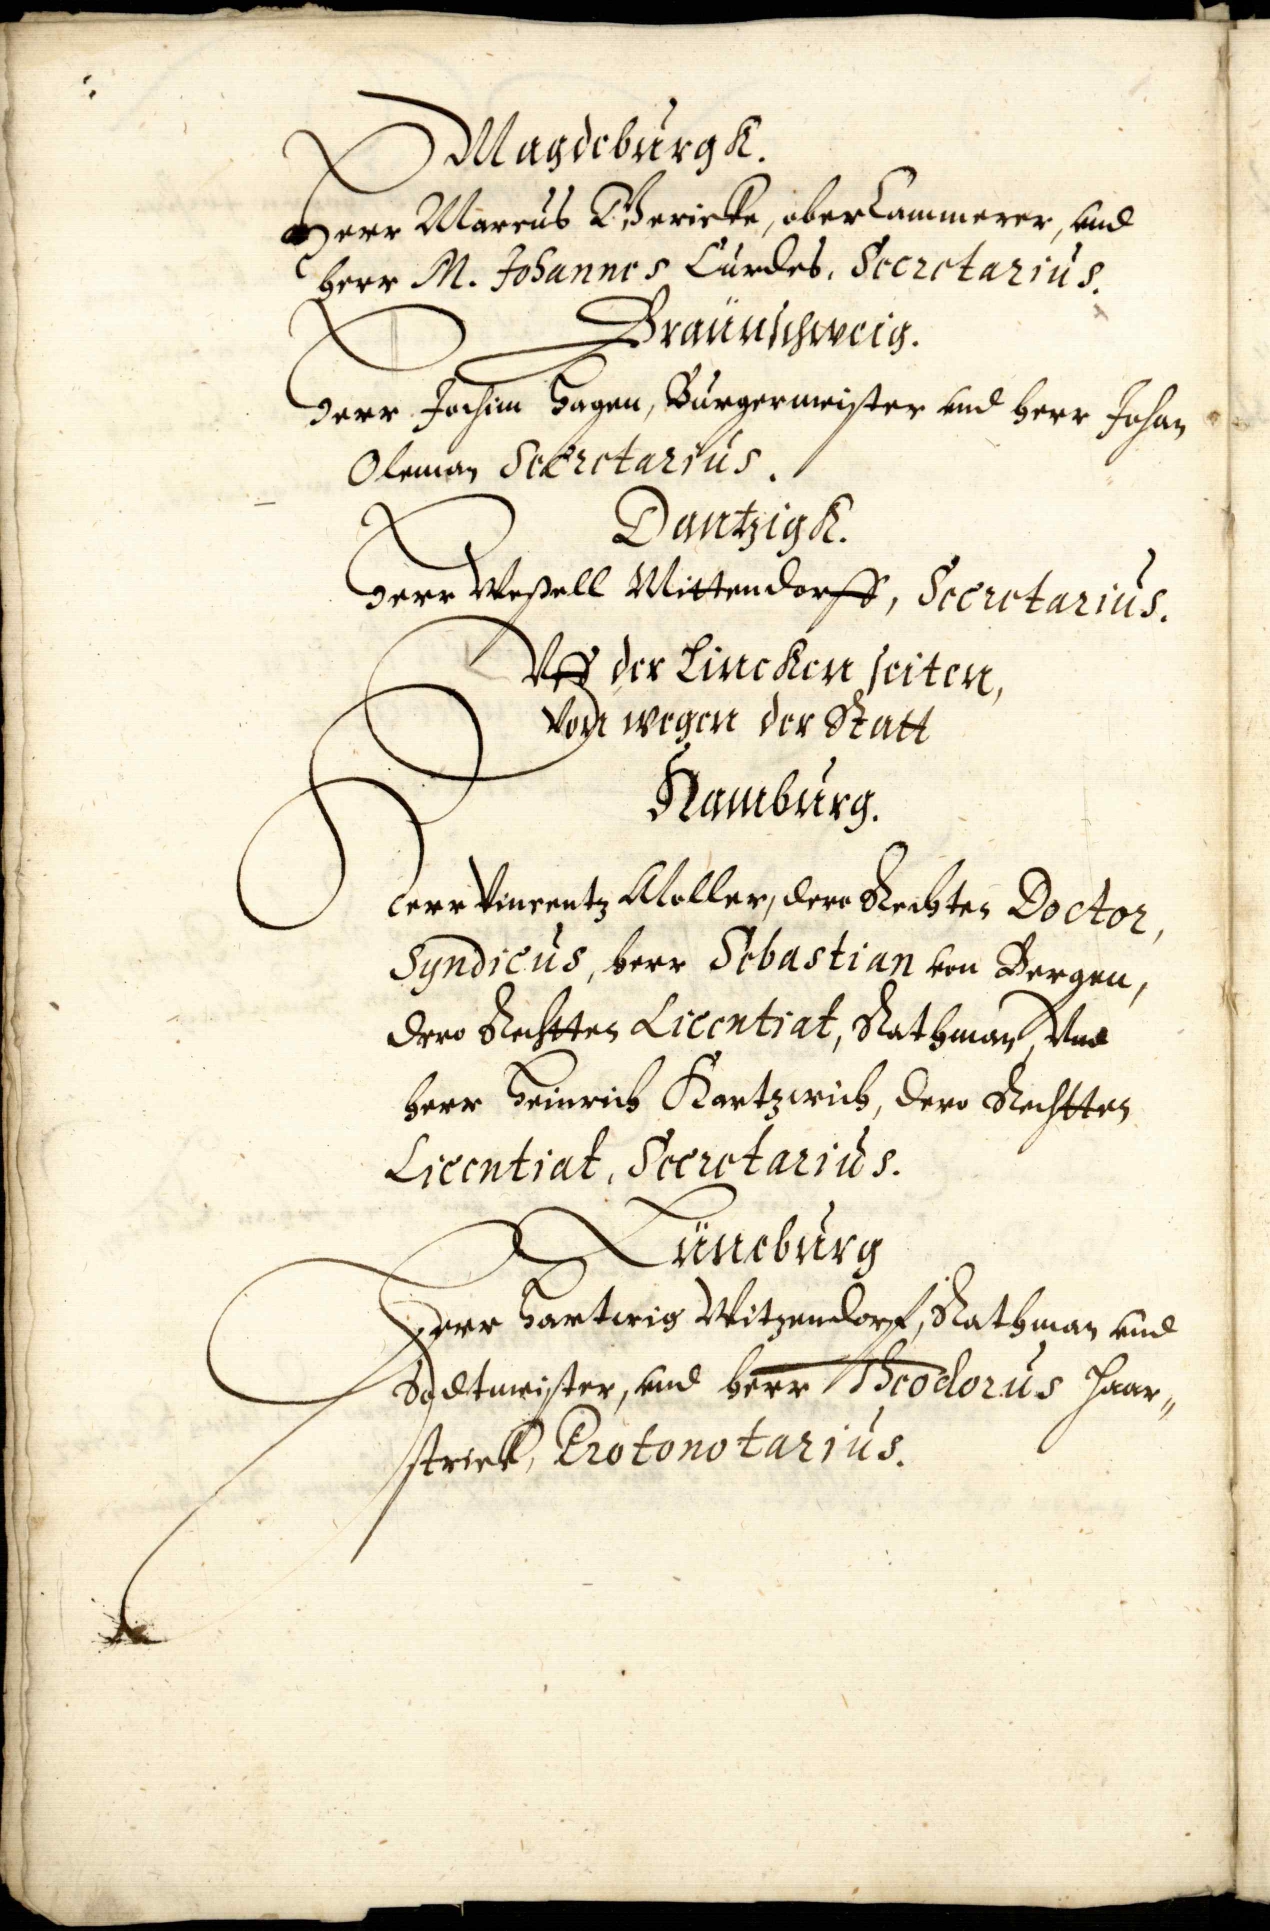 Magdeburgk.
Herr Marcus Gericke, ober Cammerer, vnd
herr M. Johannes Curdes, Secretarius.
Braünschweig.
Herr Jochim Hagen, Burgermeister vnd herr Johan
Oleman Secretarius.
Dantzigk.
Herr Weßell Mittendorff, Secretarius.
Vff der Lincken seiten,
von wegen der Statt
Hamburg.
Herr Vincentz Moller, dero Rechten Doctor,
Syndicus, herr Sebastian von Bergen,
dero Rechtten Licentiat, Rathman, Vnd
herr Heinrich Kartzwich, dero Rechtten
Licentiat, Secretarius.
Lüneburg
Herr Hartwig Witzendorf, Rathman vnd
Sodtmeister, vnd herr Theodorus Haar„
strick, Protonotarius.